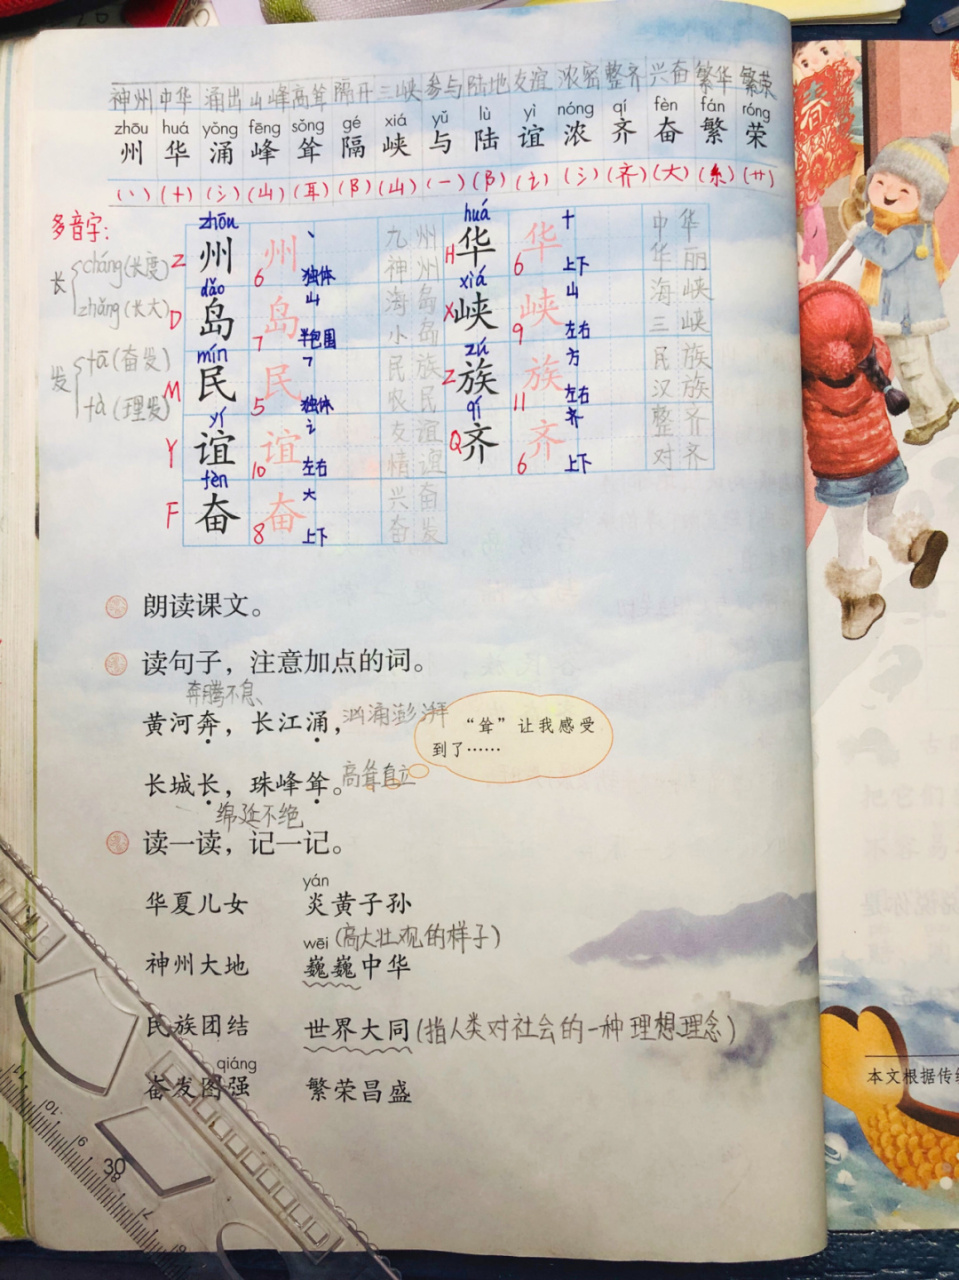 神州 中华 涌出 山峰 高耸 隔开 三峡 参与 陆地 友谊 浓密 整齐 兴奋 繁华 繁荣
zhōu huá yǒng fēng sǒng gé xiá yǔ lù yì nóng qí fèn fán róng
州 华 涌 峰 耸 隔 峡 与 陆 谊 浓 齐 奋 繁 荣
(丶) (十) (氵) (山) (耳) (阝) (山) (一) (阝) (讠) (氵) (齐) (大) (糸) (艹)
多音字:
长 cháng (长度)
zhǎng (长大)
发 fā (奋发)
fà (理发)
zhōu huá
Z 州 州 6 丶 独体 九州 神州 H 华 华 6 十 上下 中华 华丽
dǎo xiá
D 岛 岛 7 山 半包围 海岛 小岛 X 峡 峡 9 山 左右 海峡 三峡
mín zú
M 民 民 5 独体 民族 农民 Z 族 族 11 方 左右 民族 汉族
yí qí
Y 谊 谊 10 讠 左右 友谊 情谊 Q 齐 齐 6 齐 上下 整齐 对齐
fèn
F 奋 奋 8 大 上下 兴奋 奋发
朗读课文。
读句子，注意加点的词。
奔腾不息
黄河奔，长江涌， 汹涌澎湃
“耸”让我感受
到了……
长城长，珠峰耸。 高耸直立
绵延不绝
读一读，记一记。
yán
华夏儿女 炎黄子孙
wēi (高大壮观的样子)
神州大地 巍巍中华
民族团结 世界大同 (指人类对社会的一种理想理念)
qiáng
奋发图强 繁荣昌盛
30
11
10
9
8
7
本文根据传统